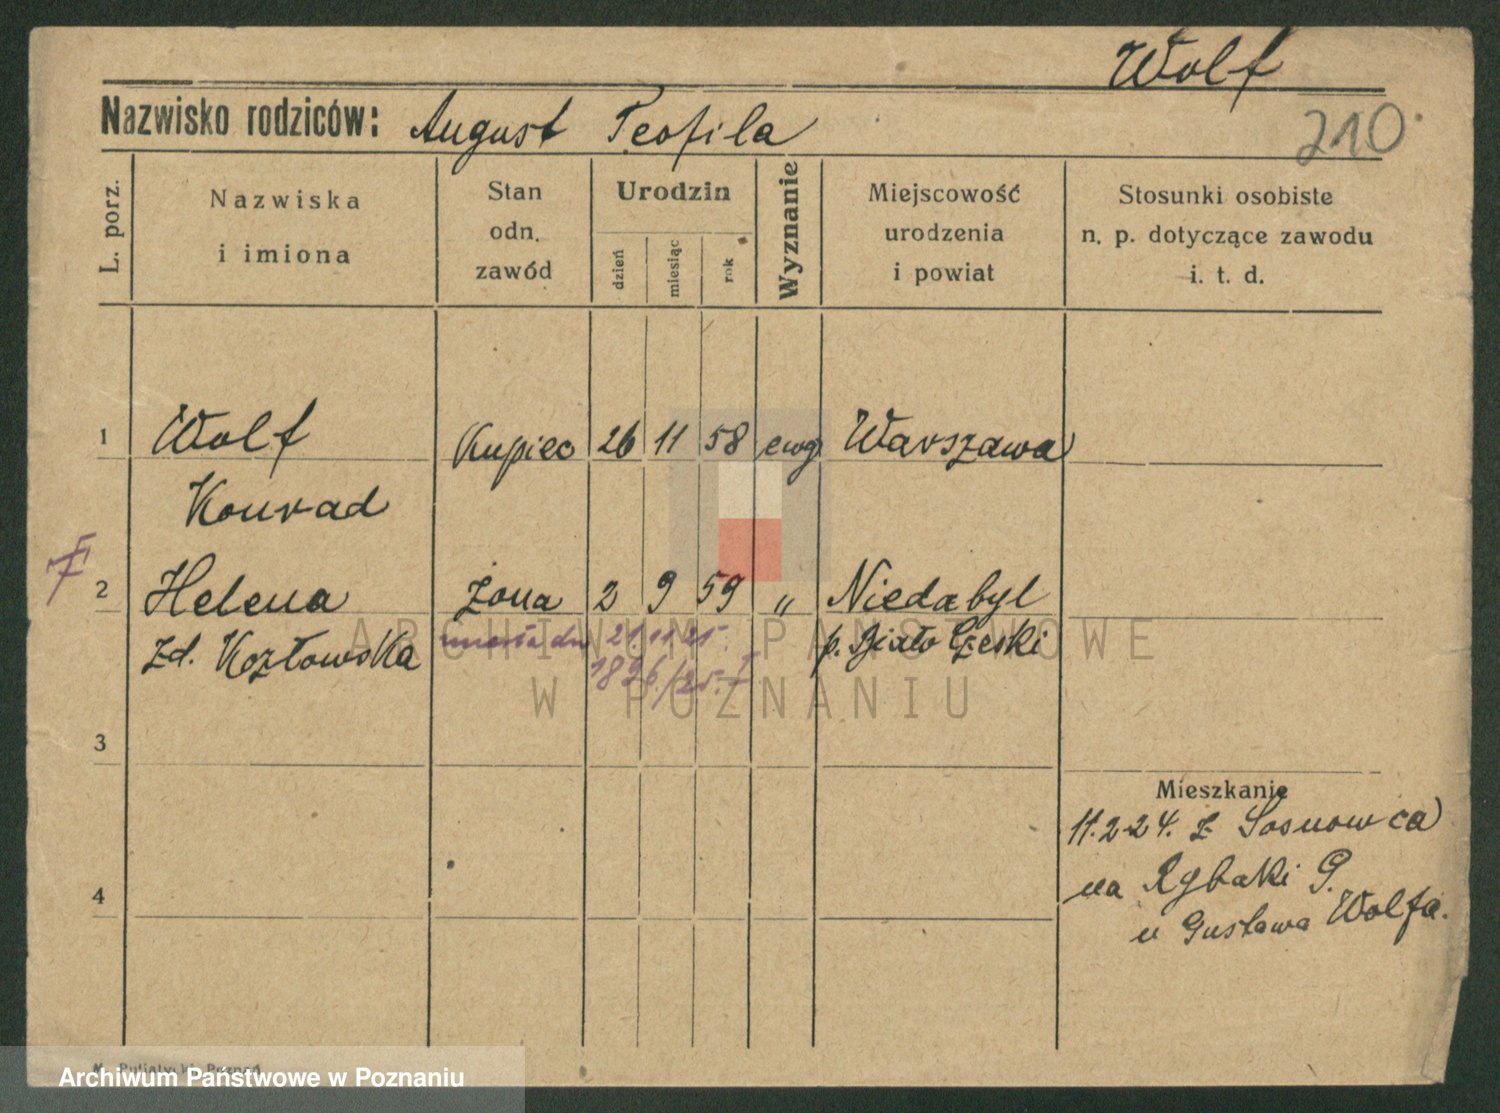 Wolf
210
Nazwisko rodziców: August Teofila
L. porz.
Nazwiska
i imiona
Stan
odn.
zawód
Urodzin
dzień
miesiąc
rok
Wyznanie
Miejscowość
urodzenia
i powiat
Stosunki osobiste
n. p. dotyczące zawodu
i. t. d.
1 Wolf Kupiec 26 11 58 ewg Warszawa
Konrad
2 Helena żona 2 9 59 " Niedabyl
zd. Kozłowska zmarła dn 21.11.25. p. Biało
1896/25. I
3
Mieszkanie
11.2.24. z Sosnowca
na Rybaki 9.
u Gustawa Wolfa.
4
ARCHIWUM PAŃSTWOWE
W POZNANIU
Archiwum Państwowe w Poznaniu